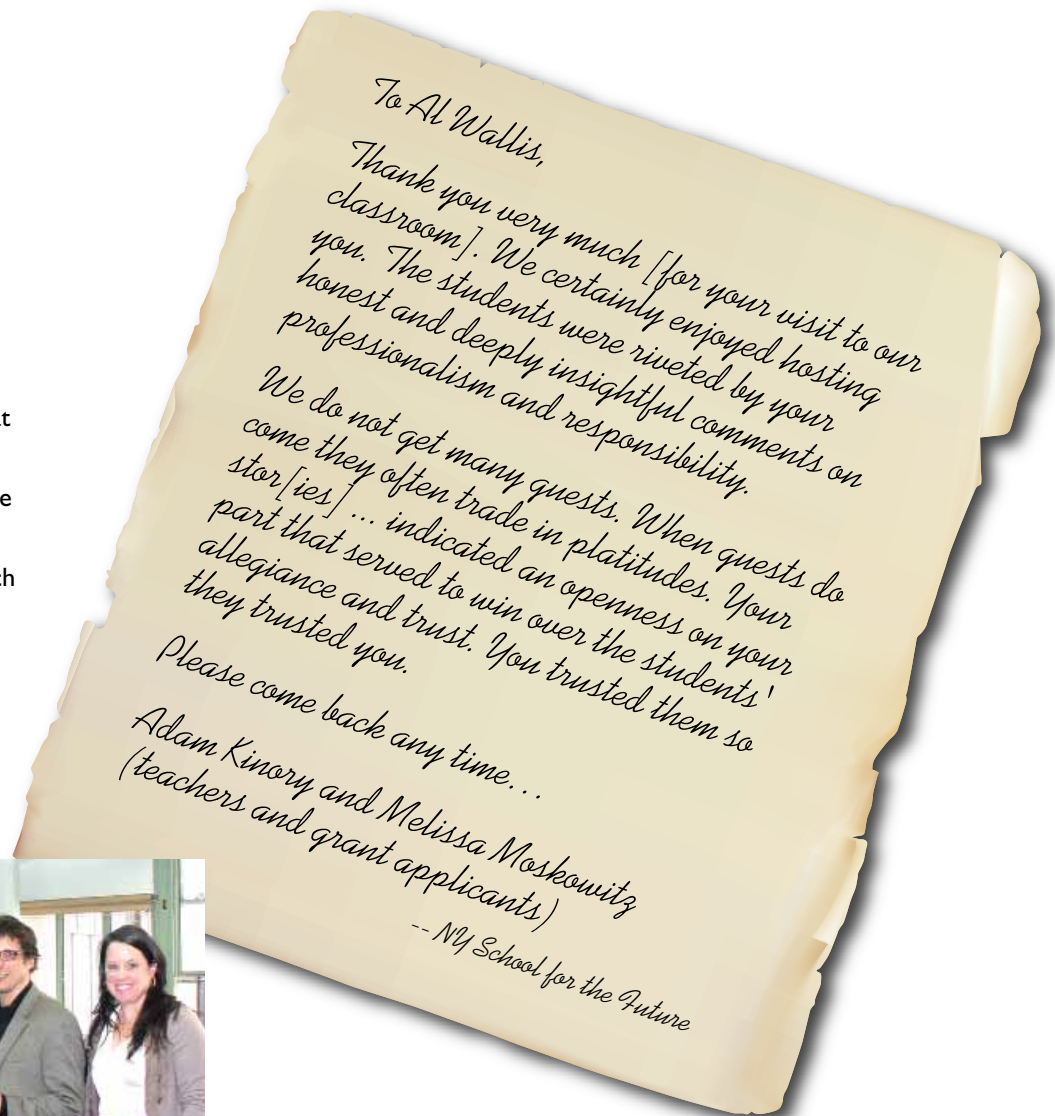 To Al Wallis,
Thank you very much [for your visit to our
classroom]. We certainly enjoyed hosting
you. The students were riveted by your
honest and deeply insightful comments on
professionalism and responsibility.
We do not get many guests. When guests do
come they often trade in platitudes. Your
stor[ies] ... indicated an openness on your
part that served to win over the students'
allegiance and trust. You trusted them so
they trusted you.
Please come back any time...
Adam Kinory and Melissa Moskowitz
(teachers and grant applicants)
-- NY School for the Future